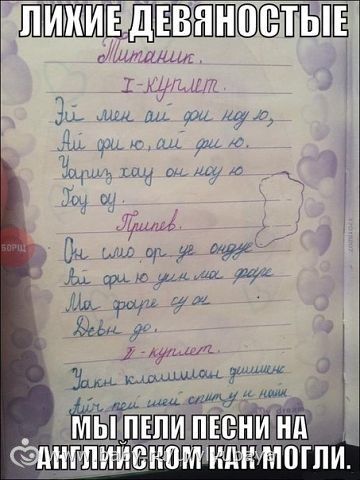 ЛИХИЕ ДЕВЯНОСТЫЕ
Титаник.
I-куплет.
Эй мен ай фи ноу ю,
Ай фи ю, ай фи ю.
хау он ноу ю
Гоу оу.
Припев.
БОРЩ
Он смо ор уе
Ай фи ю уин ма фаре
Ма фаре су он
Девн до.
II-куплет.
Уакн
Айч пей шей опит у и найн
МЫ ПЕЛИ ПЕСНИ НА
АНГЛИЙСКОМ КАК МОГЛИ.